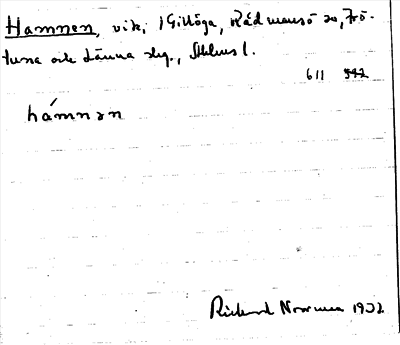 Hamnen, vik, i Gillöga, Rådmansö sn, Frö-
tuna och Länna skg., Sthlms l.
611 542
hámnən
Rickard Norrman 1932